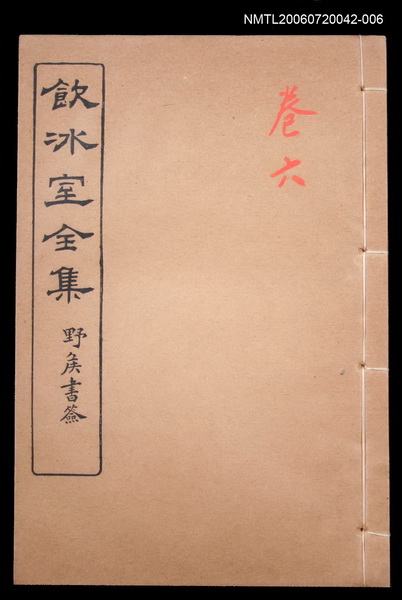 NMTL20060720042-006
飲冰室全集
野侯書籤
卷六